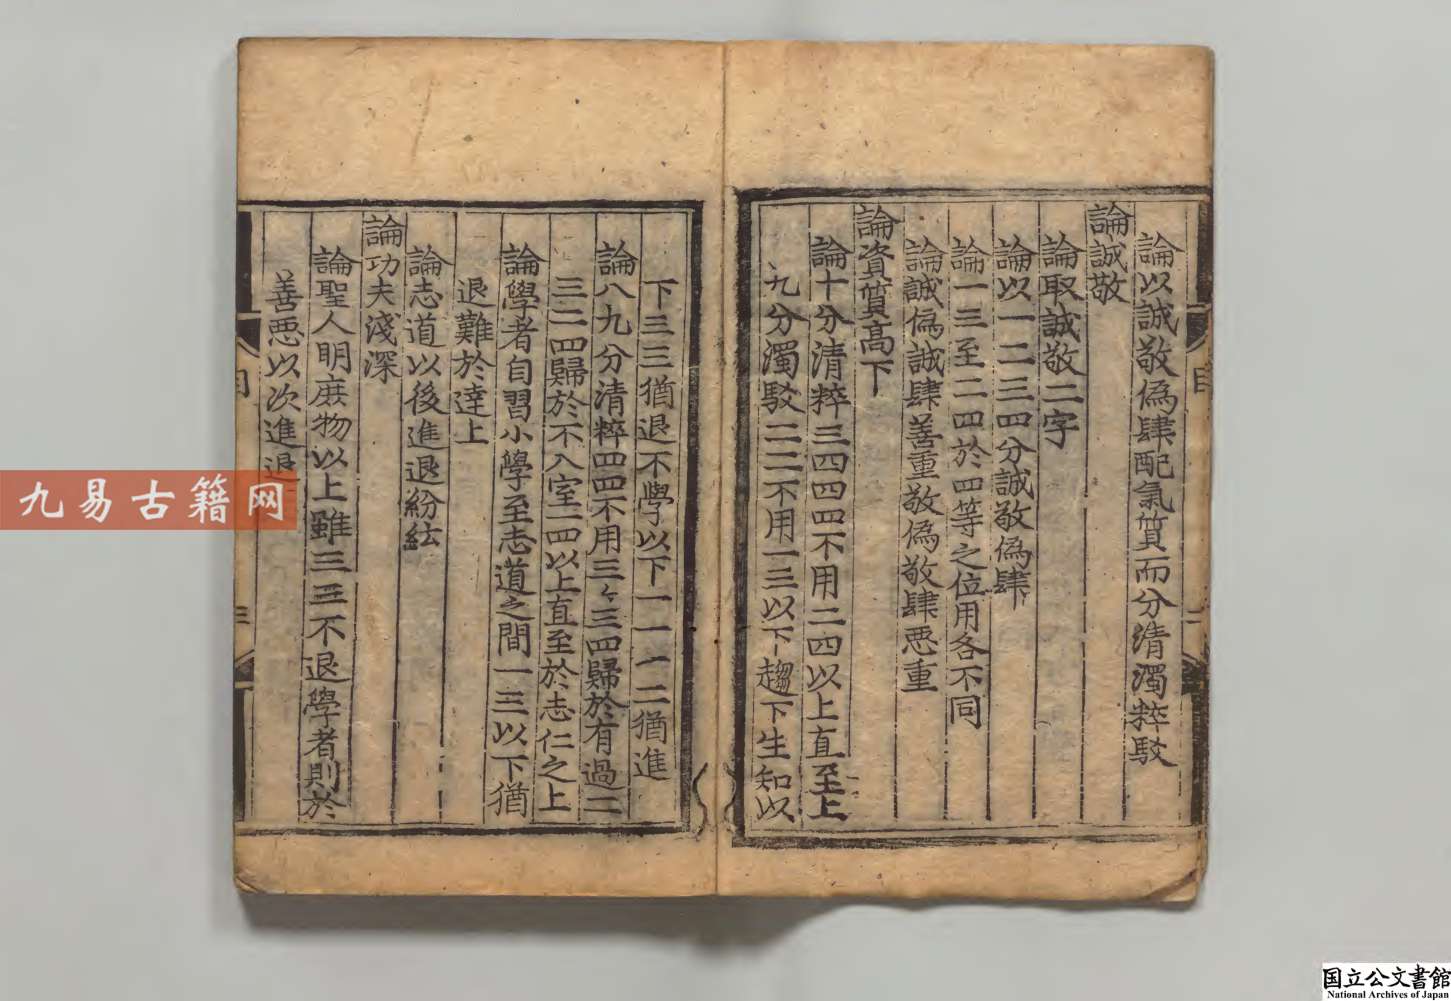 論以誠敬僞肆配氣質而分清濁粹駁
論誠敬
論取誠敬二字
論以一二三四分誠敬僞肆
論一三至二四於四等之位用各不同
論誠僞誠肆善重敬僞敬肆悪重
論資質高下
論十分清粹三四四四不用二四以上直至上
九分濁駁二二不用一三以下趨下生知以
下三三猶退不學以下一一一二猶進
論八九分清粹四四不用三三三四歸於有過二
三二四歸於不入室二四以上直至於志仁之上
論學者自習小學至志道之間一三以下猶
退難於達上
論志道以後進退紛紜
論功夫淺深
論聖人明庶物以上雖三三不退學者則於
善悪以次進退
目
三
目
九易古籍网
国立公文書館
National Archives of Japan